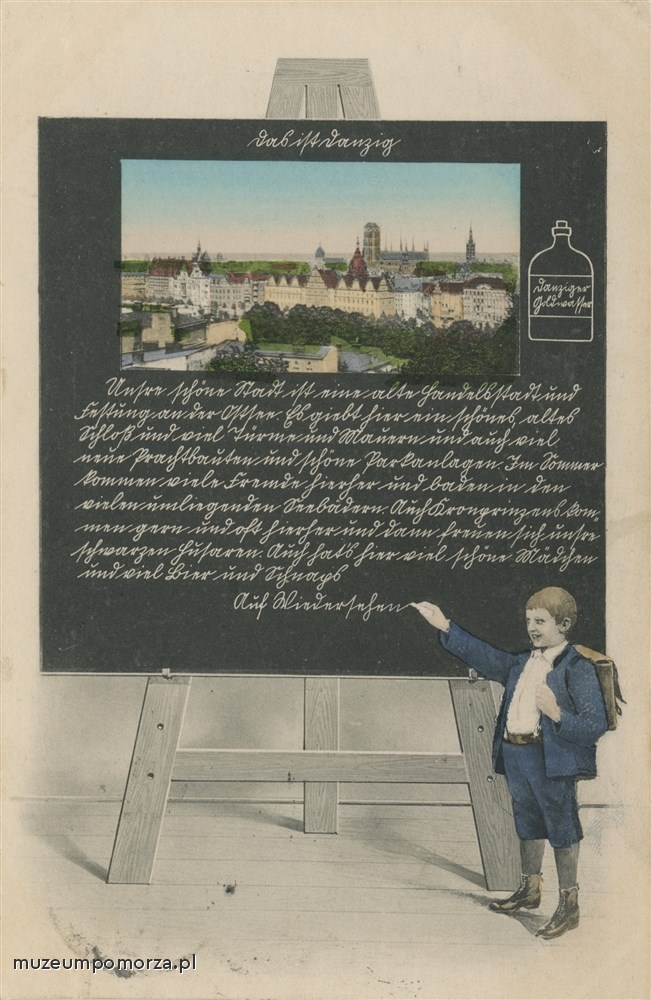 Das ist Danzig
Danziger
Goldwasser
Unsre schöne Stadt ist eine alte Handelsstadt und
Festung an der Ostsee. Es giebt hier ein schönes, altes
Schloß und viel Türme und Mauern und auch viel
neue Prachtbauten und schöne Parkanlagen. Im Sommer
kommen viele Fremde hierher und baden in den
vielen umliegenden Seebädern. Auch Kronprinzens kom-
men gern und oft hierher und dann freuen sich unsre
schwarzen Husaren. Auch hats hier viel schöne Mädchen
und viel Bier und Schnaps
Auf Wiedersehen
muzeumpomorza.pl